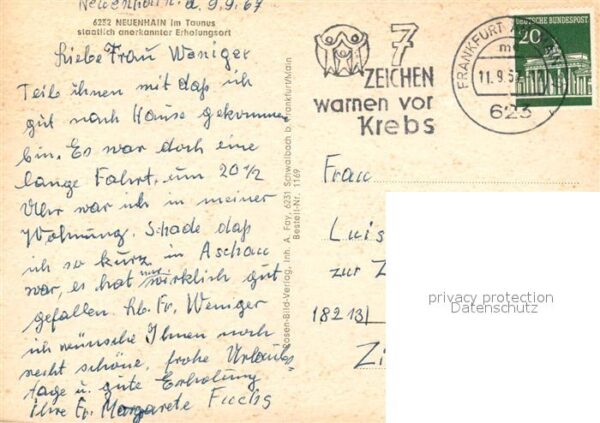 Neuenhain. d. 9.9.67
6232 NEUENHAIN im Taunus
staatlich anerkannter Erholungsort
Liebe Frau Weniger
Teile ihnen mit daß ich
gut nach Hause gekommen
bin. Es war doch eine
lange Fahrt, um 20 1/2
Uhr war ich in meiner
Wohnung. Schade daß
ich so kurz in Aschau
war, es hat mir wirklich gut
gefallen. Lb. Fr. Weniger
ich wünsche Ihnen noch
recht schöne, frohe Urlaubs
tage u. gute Erholung
Ihre Fr. Margarete Fuchs
Rosen-Bild-Verlag, Inh. A. Fay, 6231 Schwalbach b. Frankfurt/Main
Bestell-Nr. 1169
7
ZEICHEN
warnen vor
Krebs
FRANKFURT
11.9.67
623
DEUTSCHE BUNDESPOST
20
Frau
Luis
zur Z
18213
Zi
privacy protection
Datenschutz